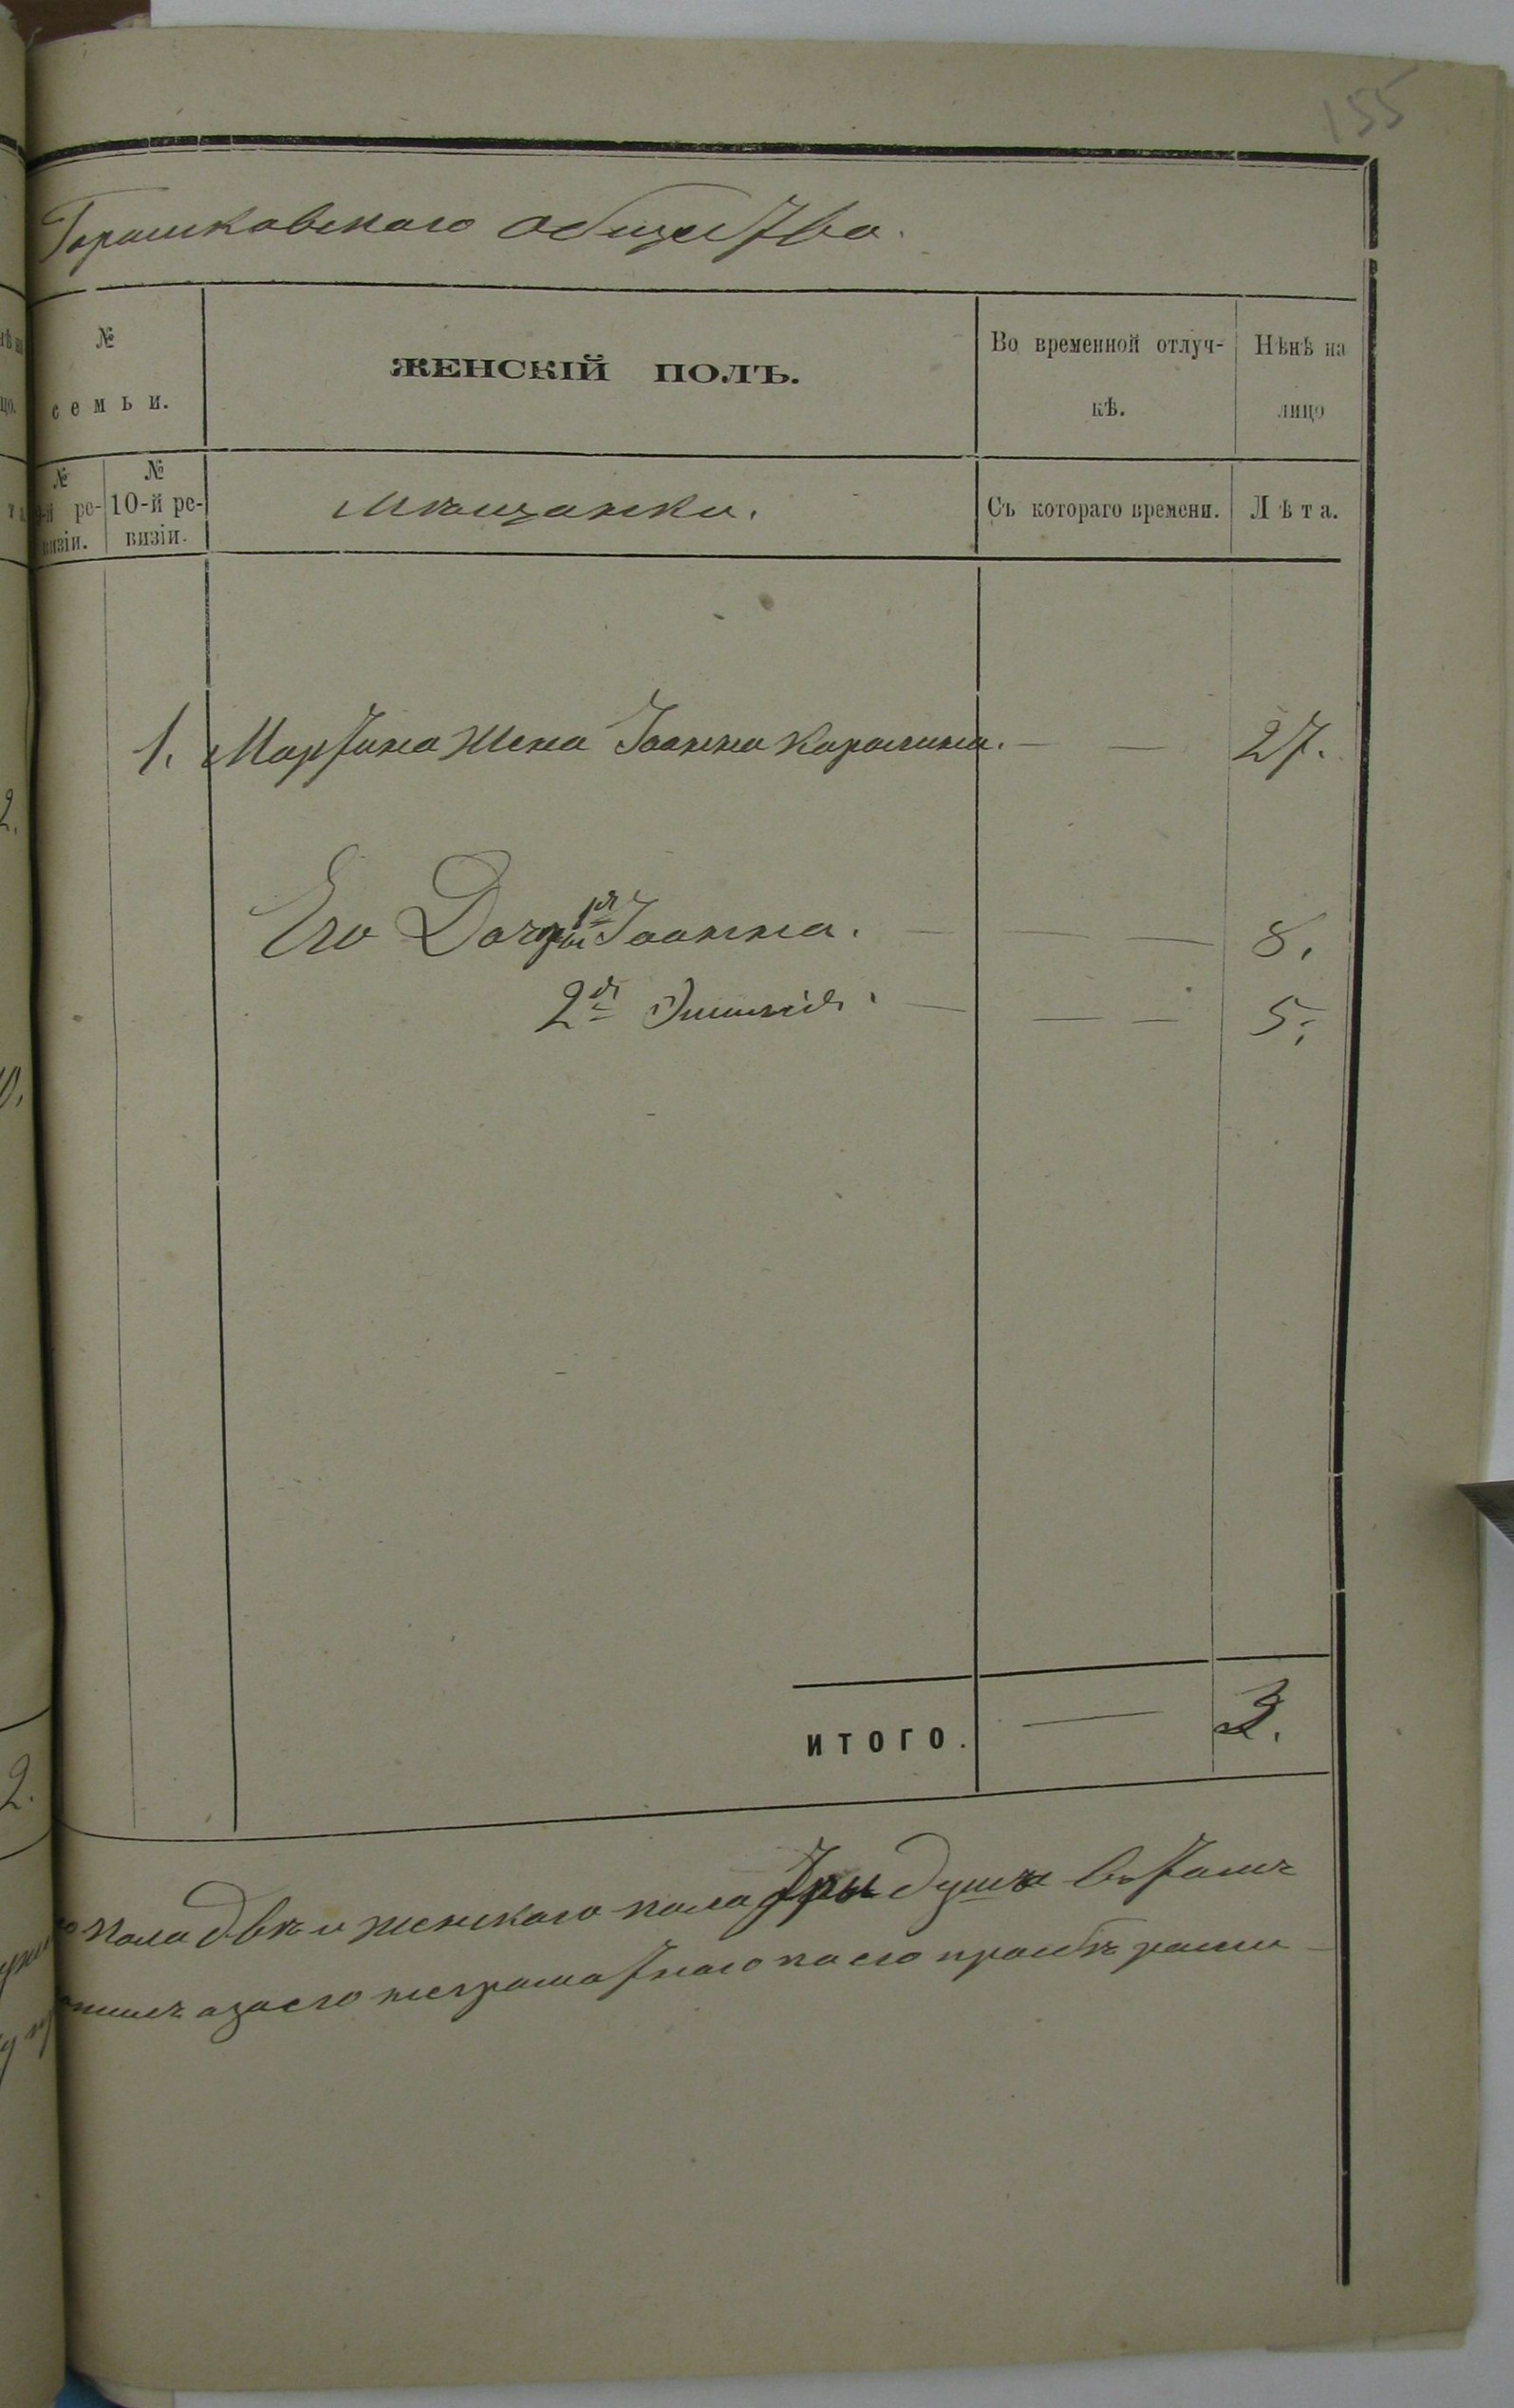 155
Горошковскаго общества.
№
семьи.
ЖЕНСКІЙ ПОЛЪ.
Во временной отлуч-
кѣ.
Нѣнѣ на
лицо
№
9-й ре-
визіи.
№
10-й ре-
визіи.
Мѣщанки.
Съ котораго времени.
Лѣта.
1. Мартина жена Іоанна Каролина. — — 27.
Его Дочери 1я Іоанна. — — — 8.
2я Эмилія. — — — 5.
ИТОГО. — 3.
пола двѣ и женскаго пола три души въ томъ
а за его неграматнаго по его прозбѣ